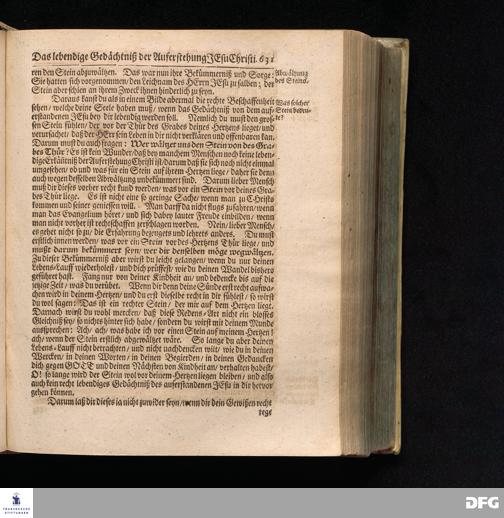 Das lebendige Gedächtniß der Auferstehung JEsu Christi. 631
ren den Stein abzuwältzen. Das war nun ihre Bekümmerniß und Sorge:
Sie hatten sich vorgenommen/ den Leichnam des HErrn JEsu zu salben; der
Stein aber schien an ihrem Zweck ihnen hinderlich zu seyn.
Abwältzung
des Steins.
Daraus kanst du als in einem Bilde abermal die rechte Beschaffenheit
sehen/ welche deine Seele haben muß/ wenn das Gedächtniß von dem auf-
erstandenen JEsu bey dir lebendig werden soll. Nemlich du must den gros-
sen Stein fühlen/ der vor der Thür des Grabes deines Hertzens lieget/ und
verursachet/ daß der HErr sein Leben in dir nicht verklären und offenbaren kan.
Was solcher
Stein bedeu-
te?
Darum must du auch fragen: Wer wältzet uns den Stein von des Gra-
bes Thür? Es ist kein Wunder/ daß bey manchem Menschen noch keine leben-
dige Erkäntniß der Auferstehung Christi ist/ darum daß sie sich noch nicht einmal
umgesehen/ ob und was für ein Stein auf ihrem Hertzen liege/ daher sie denn
auch wegen desselben Abwältzung unbekümmert sind. Darum lieber Mensch
muß dir dieses vorher recht kund werden/ was vor ein Stein vor deines Gra-
bes Thür liege. Es ist nicht eine so geringe Sache/ wenn man zu Christo
kommen und seiner geniessen will. Man darff da nicht flugs zufahren/ wenn
man das Evangelium höret/ und sich dabey lauter Freude einbilden/ wenn
man nicht vorher ist rechtschaffen zerschlagen worden. Nein/ lieber Mensch/
es gehet nicht so an; die Erfahrung bezeugets und lehrets anders. Du must
erstlich innen werden/ was vor ein Stein vor des Hertzens Thür liege/ und
must darum bekümmert seyn/ wer dir denselben möge wegwältzen.
Zu dieser Bekümmerniß aber wirst du leicht gelangen/ wenn du nur deinen
Lebens-Lauff wiederholest/ und dich prüfest/ wie du deinen Wandel bishero
geführet hast. Fang nur von deiner Kindheit an/ und bedencke bis auf die
jetzige Zeit/ was du verübet. Wenn dir denn deine Sünde erst recht aufwa-
chen wird in deinem Hertzen/ und du erst dieselbe recht in dir fühlest/ so wirst
du wol sagen: Das ist ein rechter Stein/ der mir auf dem Hertzen liegt.
Darnach wirst du wohl mercken/ daß diese Redens-Art nicht ein blosses
Gleichniß sey/ so nichts hinter sich habe/ sondern du wirst mit deinem Munde
aussprechen: Ach/ ach/ was habe ich vor einen Stein auf meinem Hertzen!
ach/ wenn der Stein erstlich abgewältzet wäre. So lange du aber deinen
Lebens-Lauff nicht betrachten/ und nicht nachdencken wilt/ wie du in deinen
Wercken/ in deinen Worten/ in deinen Begierden/ in deinen Gedancken
dich gegen GOTT und deinen Nächsten von Kindheit an/ verhalten habest/
O! so lange wird der Stein wol vor deinem Hertzen liegen bleiben/ und also
auch kein recht lebendiges Gedächtniß des auferstandenen JEsu in dir hervor
gehen können.
Darum laß dir dieses ja nicht zuwider seyn/ wenn dir dein Gewissen recht
rege
FRANCKESCHE
STIFTUNGEN
DFG